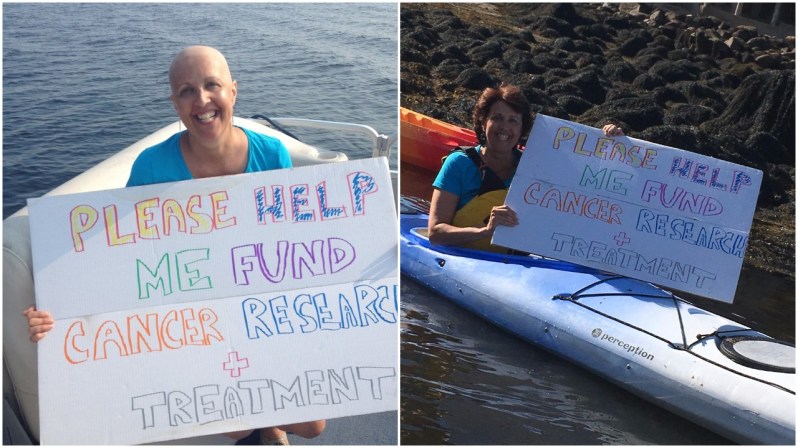 PLEASE HELP
ME FUND
CANCER RESEARC
+
TREATMENT
PLEASE HELP
ME FUND
CANCER RESEARCH
+
TREATMENT
perception